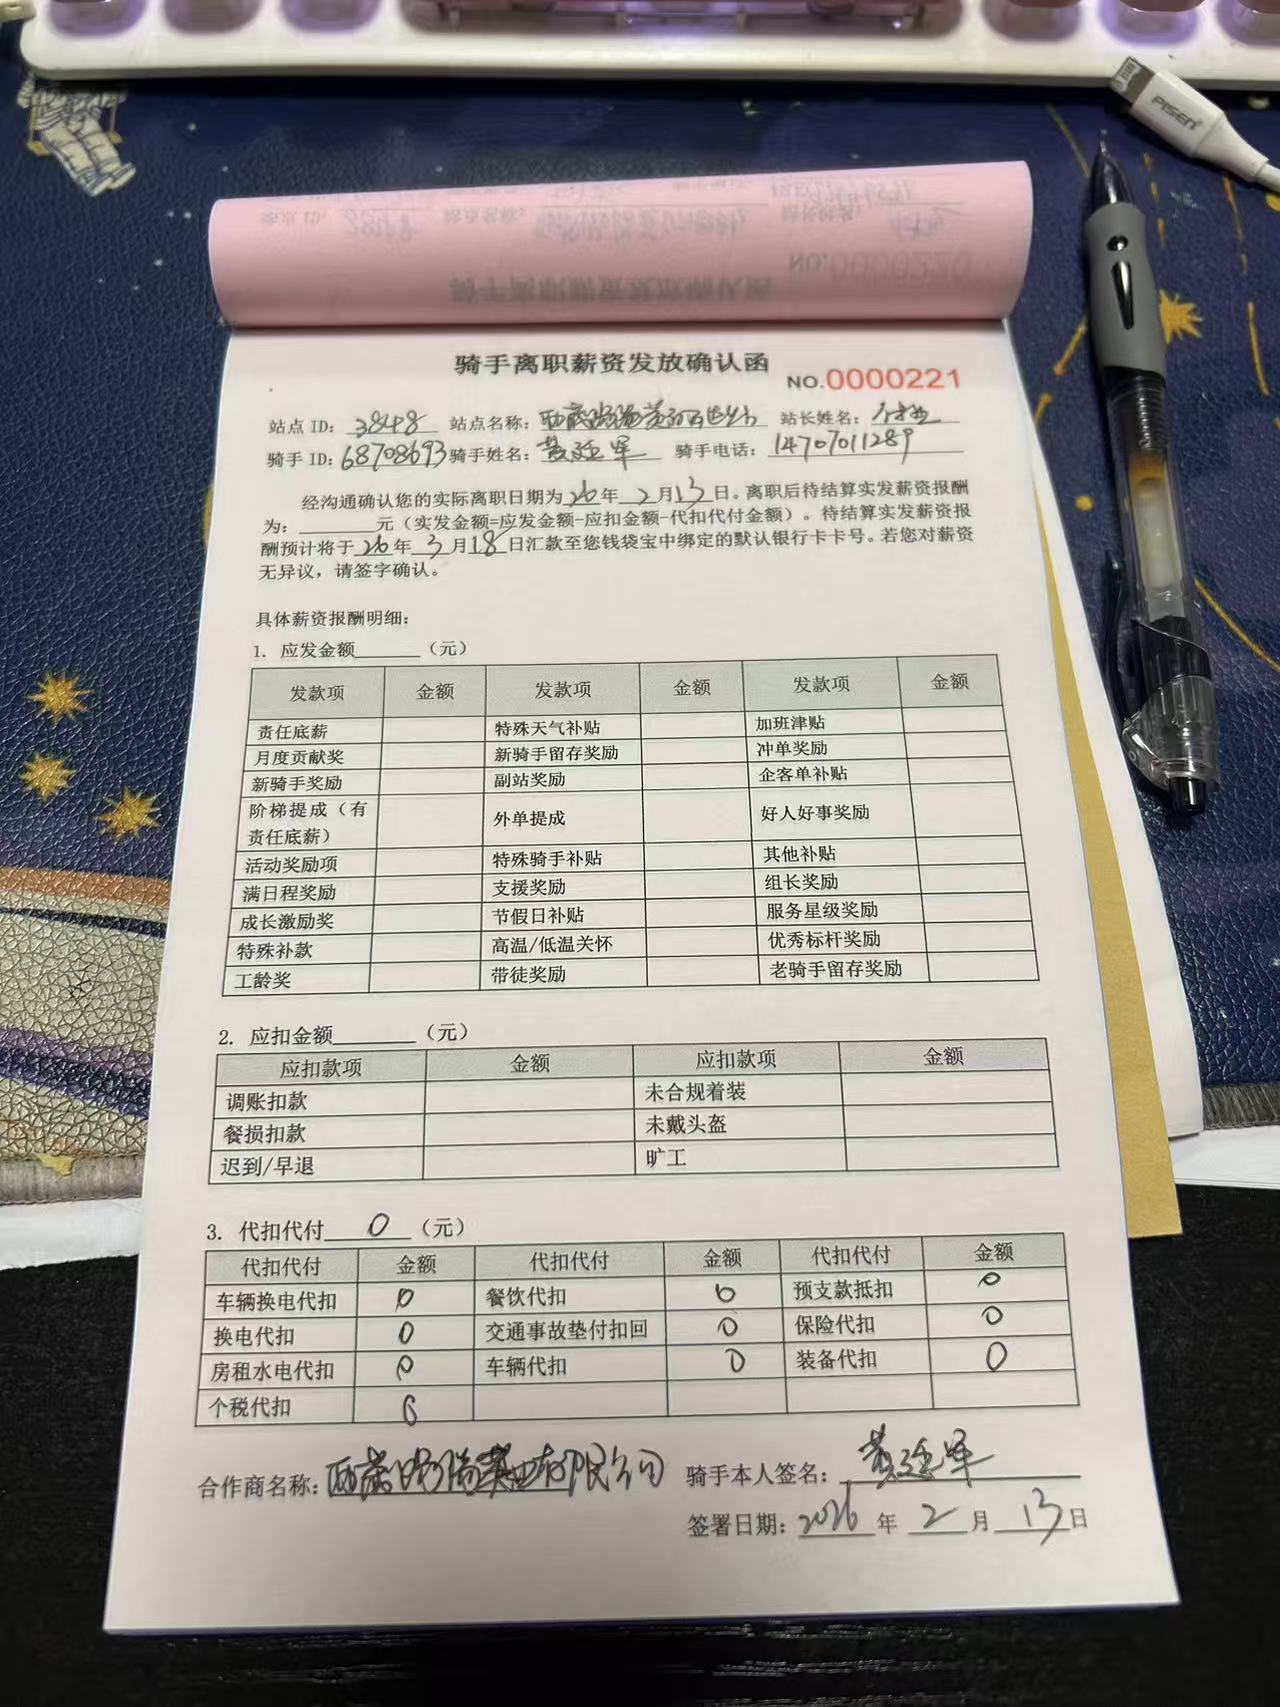 PISEN
NO.0000220
骑手离职薪资发放确认函
NO.0000221
站点 ID: 3848 站点名称: 西藏 站长姓名:
骑手 ID: 68708693 骑手姓名: 黄廷军 骑手电话: 14707011289
经沟通确认您的实际离职日期为26年2月13日。离职后待结算实发薪资报酬
为: 元（实发金额=应发金额-应扣金额-代扣代付金额）。待结算实发薪资报
酬预计将于26年3月18日汇款至您钱袋宝中绑定的默认银行卡卡号。若您对薪资
无异议，请签字确认。
具体薪资报酬明细:
1. 应发金额 （元）
发款项 金额 发款项 金额 发款项 金额
责任底薪 特殊天气补贴 加班津贴
月度贡献奖 新骑手留存奖励 冲单奖励
新骑手奖励 副站奖励 企客单补贴
阶梯提成（有责任底薪） 外单提成 好人好事奖励
活动奖励项 特殊骑手补贴 其他补贴
满日程奖励 支援奖励 组长奖励
成长激励奖 节假日补贴 服务星级奖励
特殊补款 高温/低温关怀 优秀标杆奖励
工龄奖 带徒奖励 老骑手留存奖励
2. 应扣金额 （元）
应扣款项 金额 应扣款项 金额
调账扣款 未合规着装
餐损扣款 未戴头盔
迟到/早退 旷工
3. 代扣代付 0 （元）
代扣代付 金额 代扣代付 金额 代扣代付 金额
车辆换电代扣 0 餐饮代扣 0 预支款抵扣 0
换电代扣 0 交通事故垫付扣回 0 保险代扣 0
房租水电代扣 0 车辆代扣 0 装备代扣 0
个税代扣 0
合作商名称: 西藏 有限公司 骑手本人签名: 黄廷军
签署日期: 2026 年 2 月 13 日